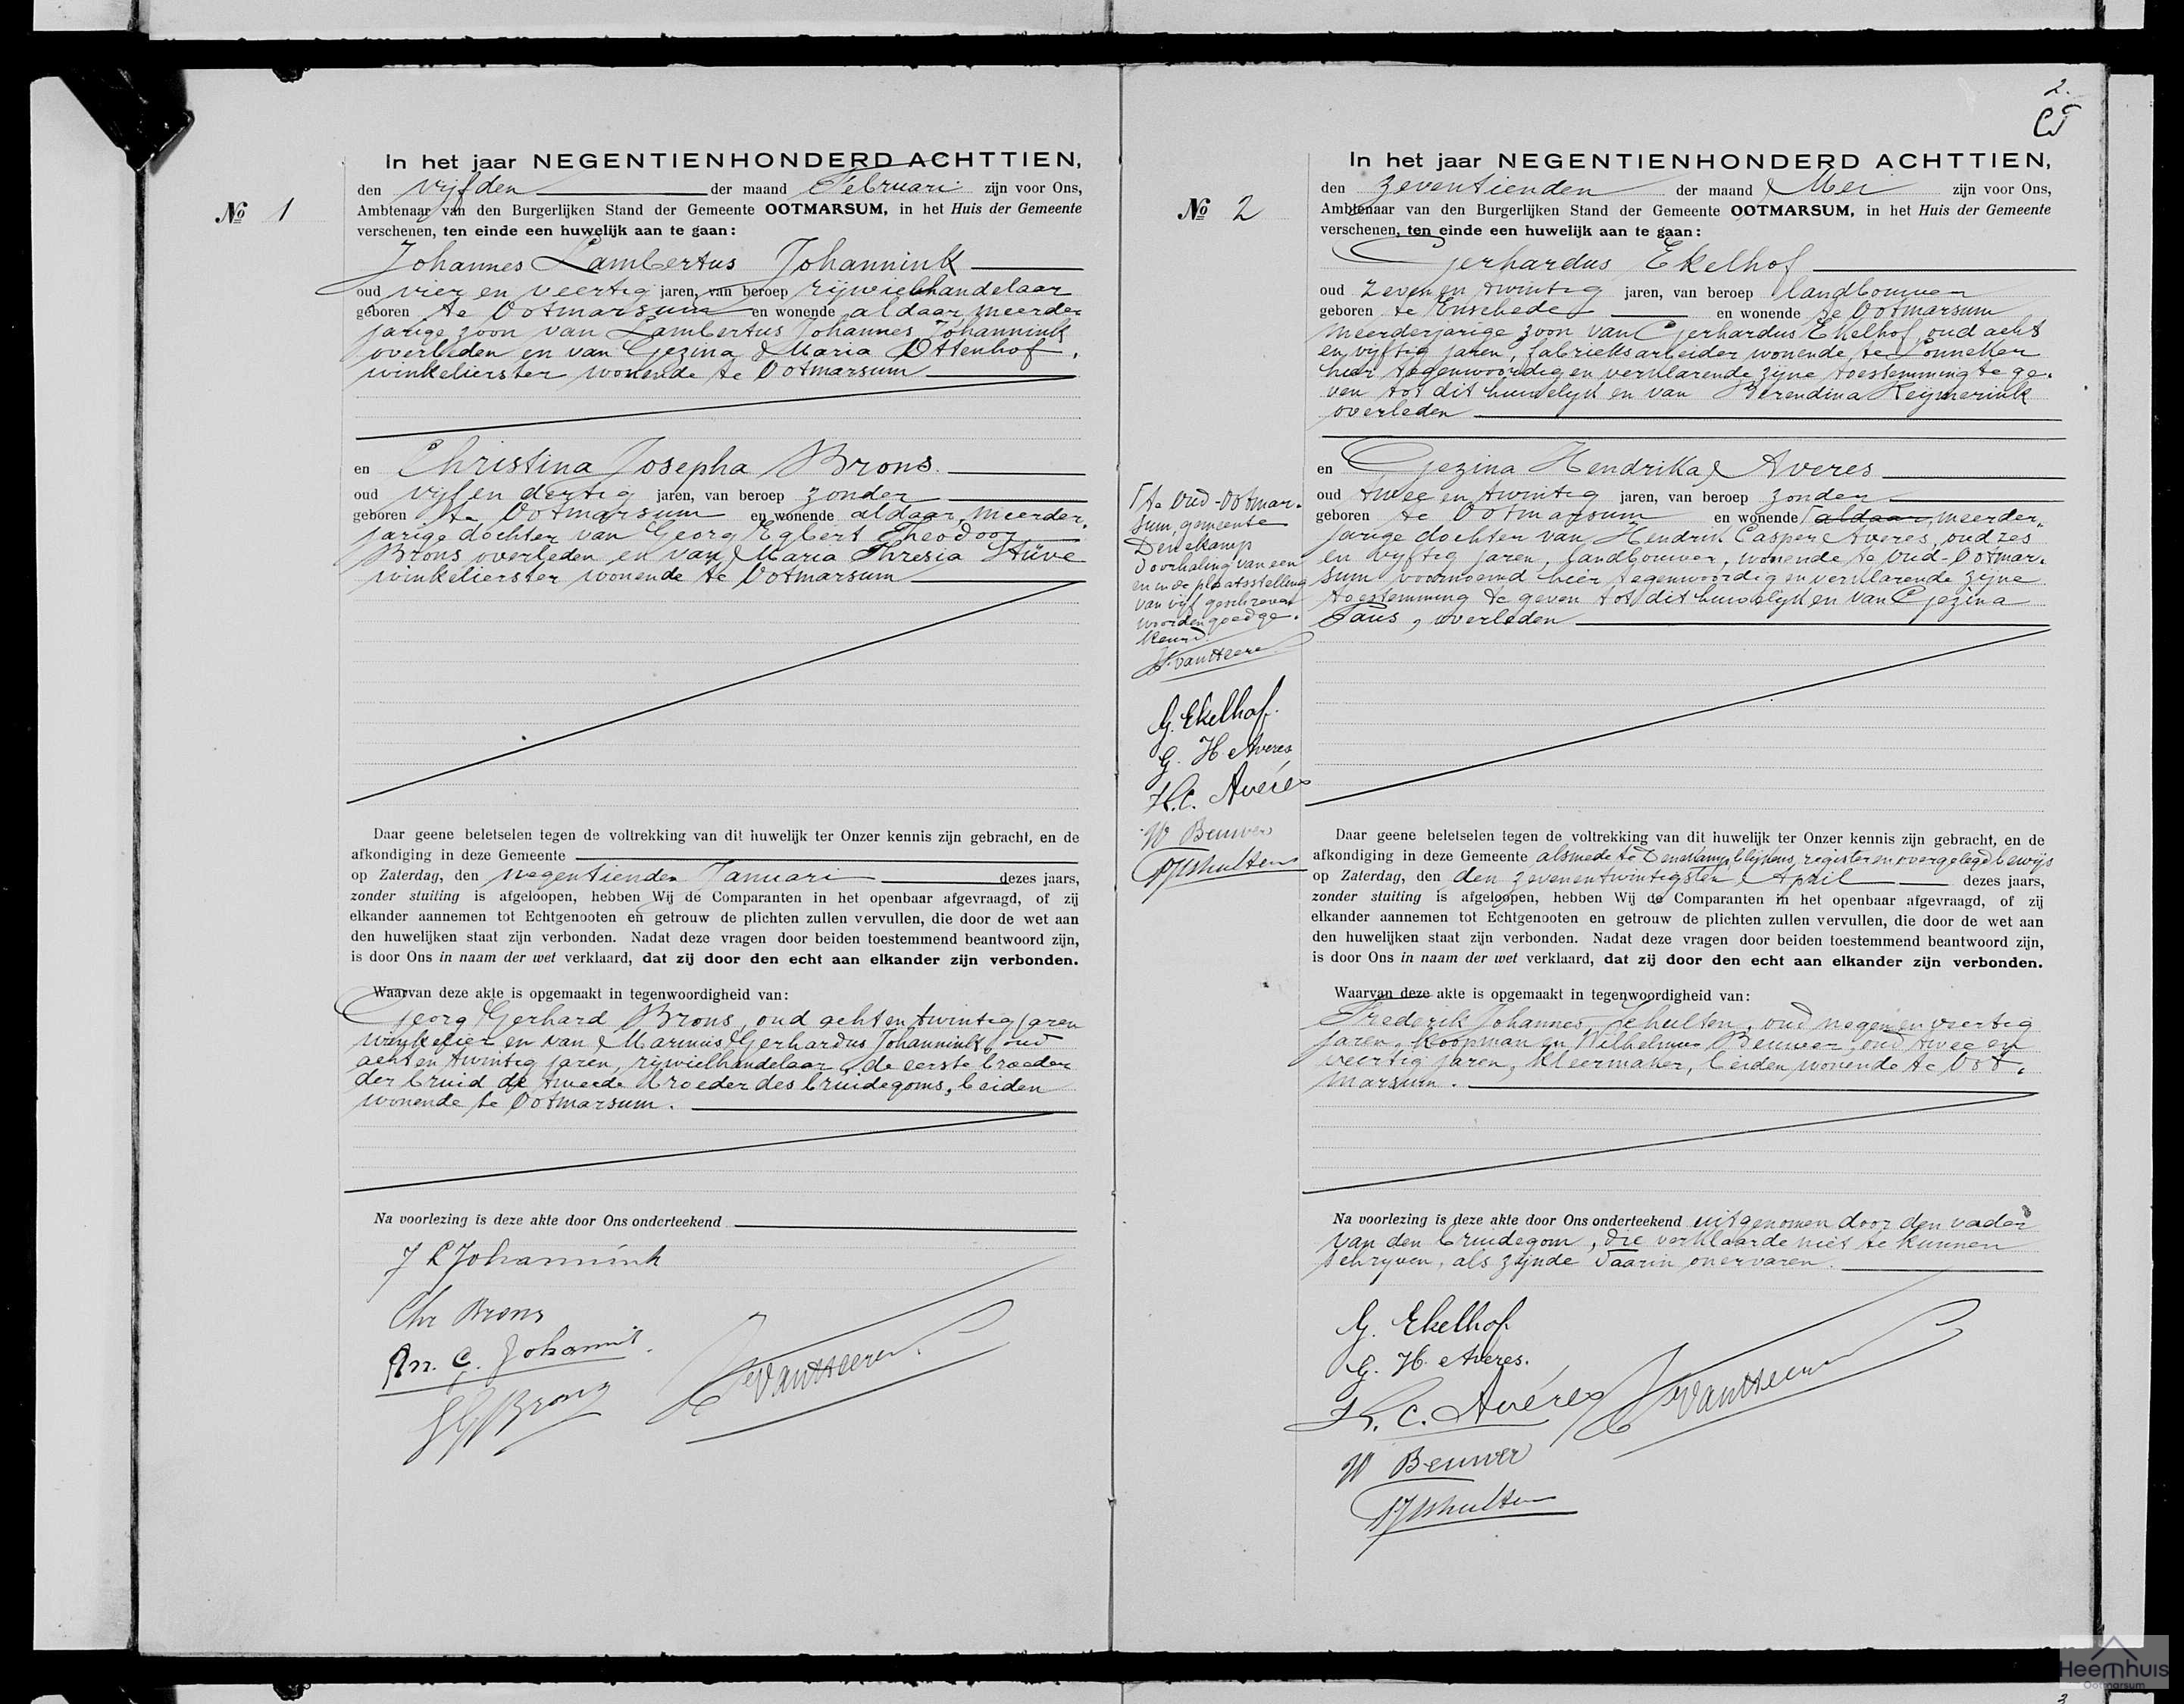 In het jaar NEGENTIENHONDERD ACHTTIEN,
den vijfden der maand Februari zijn voor Ons,
Ambtenaar van den Burgerlijken Stand der Gemeente OOTMARSUM, in het Huis der Gemeente
verschenen, ten einde een huwelijk aan te gaan:
№ 1
Johannes Lambertus Johannink
oud vier en veertig jaren, van beroep rijwielhandelaar
geboren te Ootmarsum en wonende aldaar, meerder
jarige zoon van Lambertus Johannes Johannink
overleden en van Gezina Maria Ottenhof,
winkelierster wonende te Ootmarsum
en Christina Josepha Brons.
oud vijf en dertig jaren, van beroep zonder
geboren te Ootmarsum en wonende aldaar, meerder,
jarige dochter van Georg Egbert Theodoor
Brons overleden en van Maria Thresia Stüve
winkelierster wonende te Ootmarsum
Daar geene beletselen tegen de voltrekking van dit huwelijk ter Onzer kennis zijn gebracht, en de
afkondiging in deze Gemeente
op Zaterdag, den negentienden Januari dezes jaars,
zonder stuiting is afgeloopen, hebben Wij de Comparanten in het openbaar afgevraagd, of zij
elkander aannemen tot Echtgenooten en getrouw de plichten zullen vervullen, die door de wet aan
den huwelijken staat zijn verbonden. Nadat deze vragen door beiden toestemmend beantwoord zijn,
is door Ons in naam der wet verklaard, dat zij door den echt aan elkander zijn verbonden.
Waarvan deze akte is opgemaakt in tegenwoordigheid van:
Georg Gerhard Brons, oud acht en twintig jaren
winkelier en van Marinus Gerhardus Johannink, oud
acht en twintig jaren, rijwielhandelaar, de eerste broeder
der bruid de tweede broeder des bruidegoms, beiden
wonende te Ootmarsum.
Na voorlezing is deze akte door Ons onderteekend
J L Johannink
Chr Brons
G. Johannink
Brons
van Heeren
2.
In het jaar NEGENTIENHONDERD ACHTTIEN,
den zeventienden der maand Mei zijn voor Ons,
Ambtenaar van den Burgerlijken Stand der Gemeente OOTMARSUM, in het Huis der Gemeente
verschenen, ten einde een huwelijk aan te gaan:
№ 2
Gerhardus Ekelhof
oud zeven en twintig jaren, van beroep landbouwer
geboren te Enschede en wonende te Ootmarsum
meerderjarige zoon van Gerhardus Ekelhof, oud acht
en vijftig jaren, fabrieksarbeider wonende te Lonneker
hier tegenwoordig en verklarende zijne toestemming te ge.
ven tot dit huwelijk en van Berendina Reijmerink
overleden
en Gezina Hendrika Averes
oud twee en twintig jaren, van beroep zonder
geboren te Ootmarsum en wonende aldaar, meerder,
jarige dochter van Hendrik Casper Averes, oud zes
en vijftig jaren, landbouwer, wonende te Oud-Ootmar.
sum voornoemd hier tegenwoordig en verklarende zijne
toestemming te geven tot dit huwelijk en van Gezina
Paus, overleden
te Oud-Ootmar.
sum, gemeente
Denekamp
Doorhaling van een
en in de plaatsstelling
van vijf geschreven
woorden goedge.
keurd.
van Heeren
G. Ekelhof.
G. H. Averes
H.C. Avéres
W Beuwer
FJSchulten
Daar geene beletselen tegen de voltrekking van dit huwelijk ter Onzer kennis zijn gebracht, en de
afkondiging in deze Gemeente alsmede te Denekamp, blijkens register en overgelegd bewijs
op Zaterdag, den den zevenentwintigsten April dezes jaars,
zonder stuiting is afgeloopen, hebben Wij de Comparanten in het openbaar afgevraagd, of zij
elkander aannemen tot Echtgenooten en getrouw de plichten zullen vervullen, die door de wet aan
den huwelijken staat zijn verbonden. Nadat deze vragen door beiden toestemmend beantwoord zijn,
is door Ons in naam der wet verklaard, dat zij door den echt aan elkander zijn verbonden.
Waarvan deze akte is opgemaakt in tegenwoordigheid van:
Frederik Johannes Schulten, oud negen en veertig
jaren, koopman en Wilhelmus Beuwer, oud twee en
veertig jaren, kleermaker, beiden wonende te Oot,
marsum.
Na voorlezing is deze akte door Ons onderteekend uitgenomen door den vader
van den bruidegom, die verklaarde niet te kunnen
schrijven, als zijnde daarin onervaren.
G. Ekelhof.
G. H. Averes.
H. C. Avéres
van Heeren
W Beuwer
FJSchulten
Heemhuis
Ootmarsum